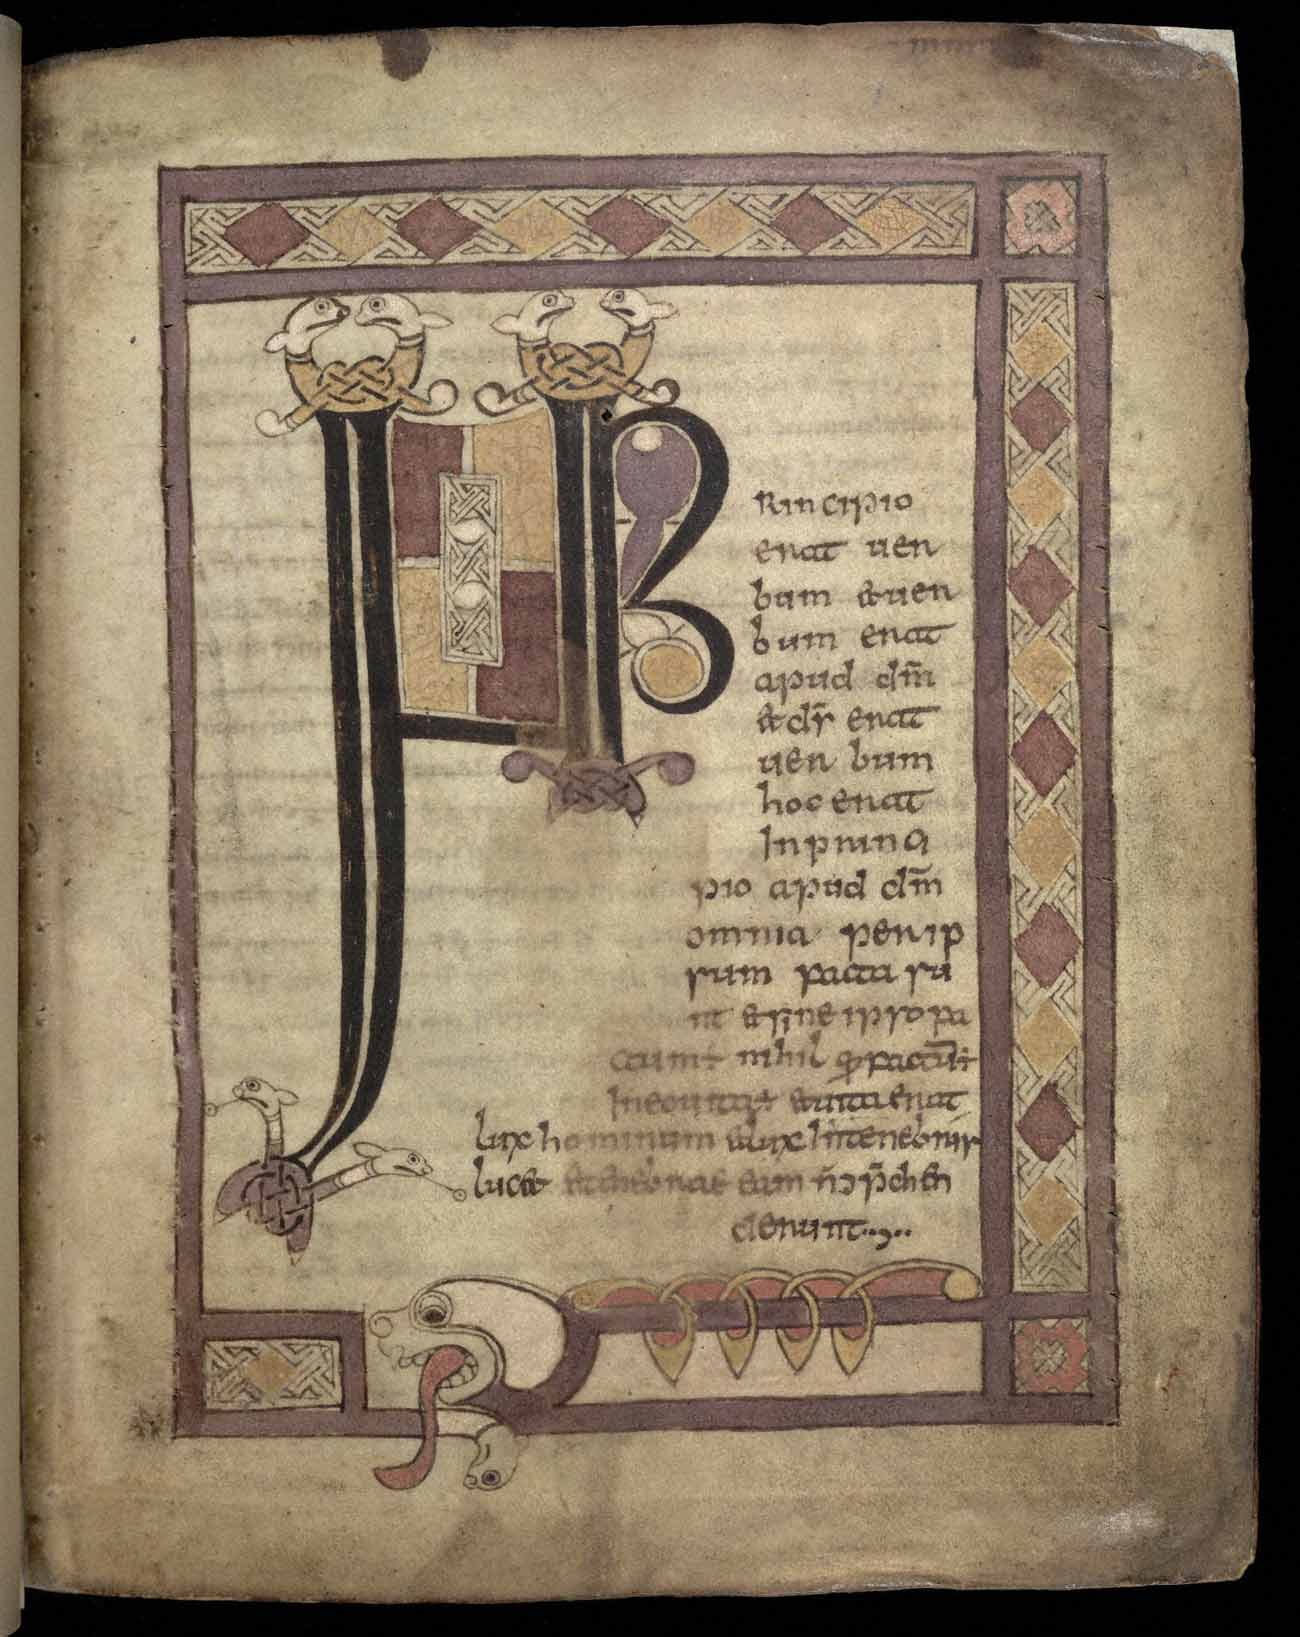 INP
rincipio
erat uer
bum & uer
bum erat
apud dm̄
& ds̄ erat
uer bum
hoc erat
In princi
pio apud dm̄
omnia per ip
sum facta su
nt & sine ipso fa
ctum ÷ nihil ꝙ factum ÷
In eo uita ÷ & uita erat
lux hominum & lux In tenebris
luc& & tenebrae eam n̄ ɔp̄chen
derunt